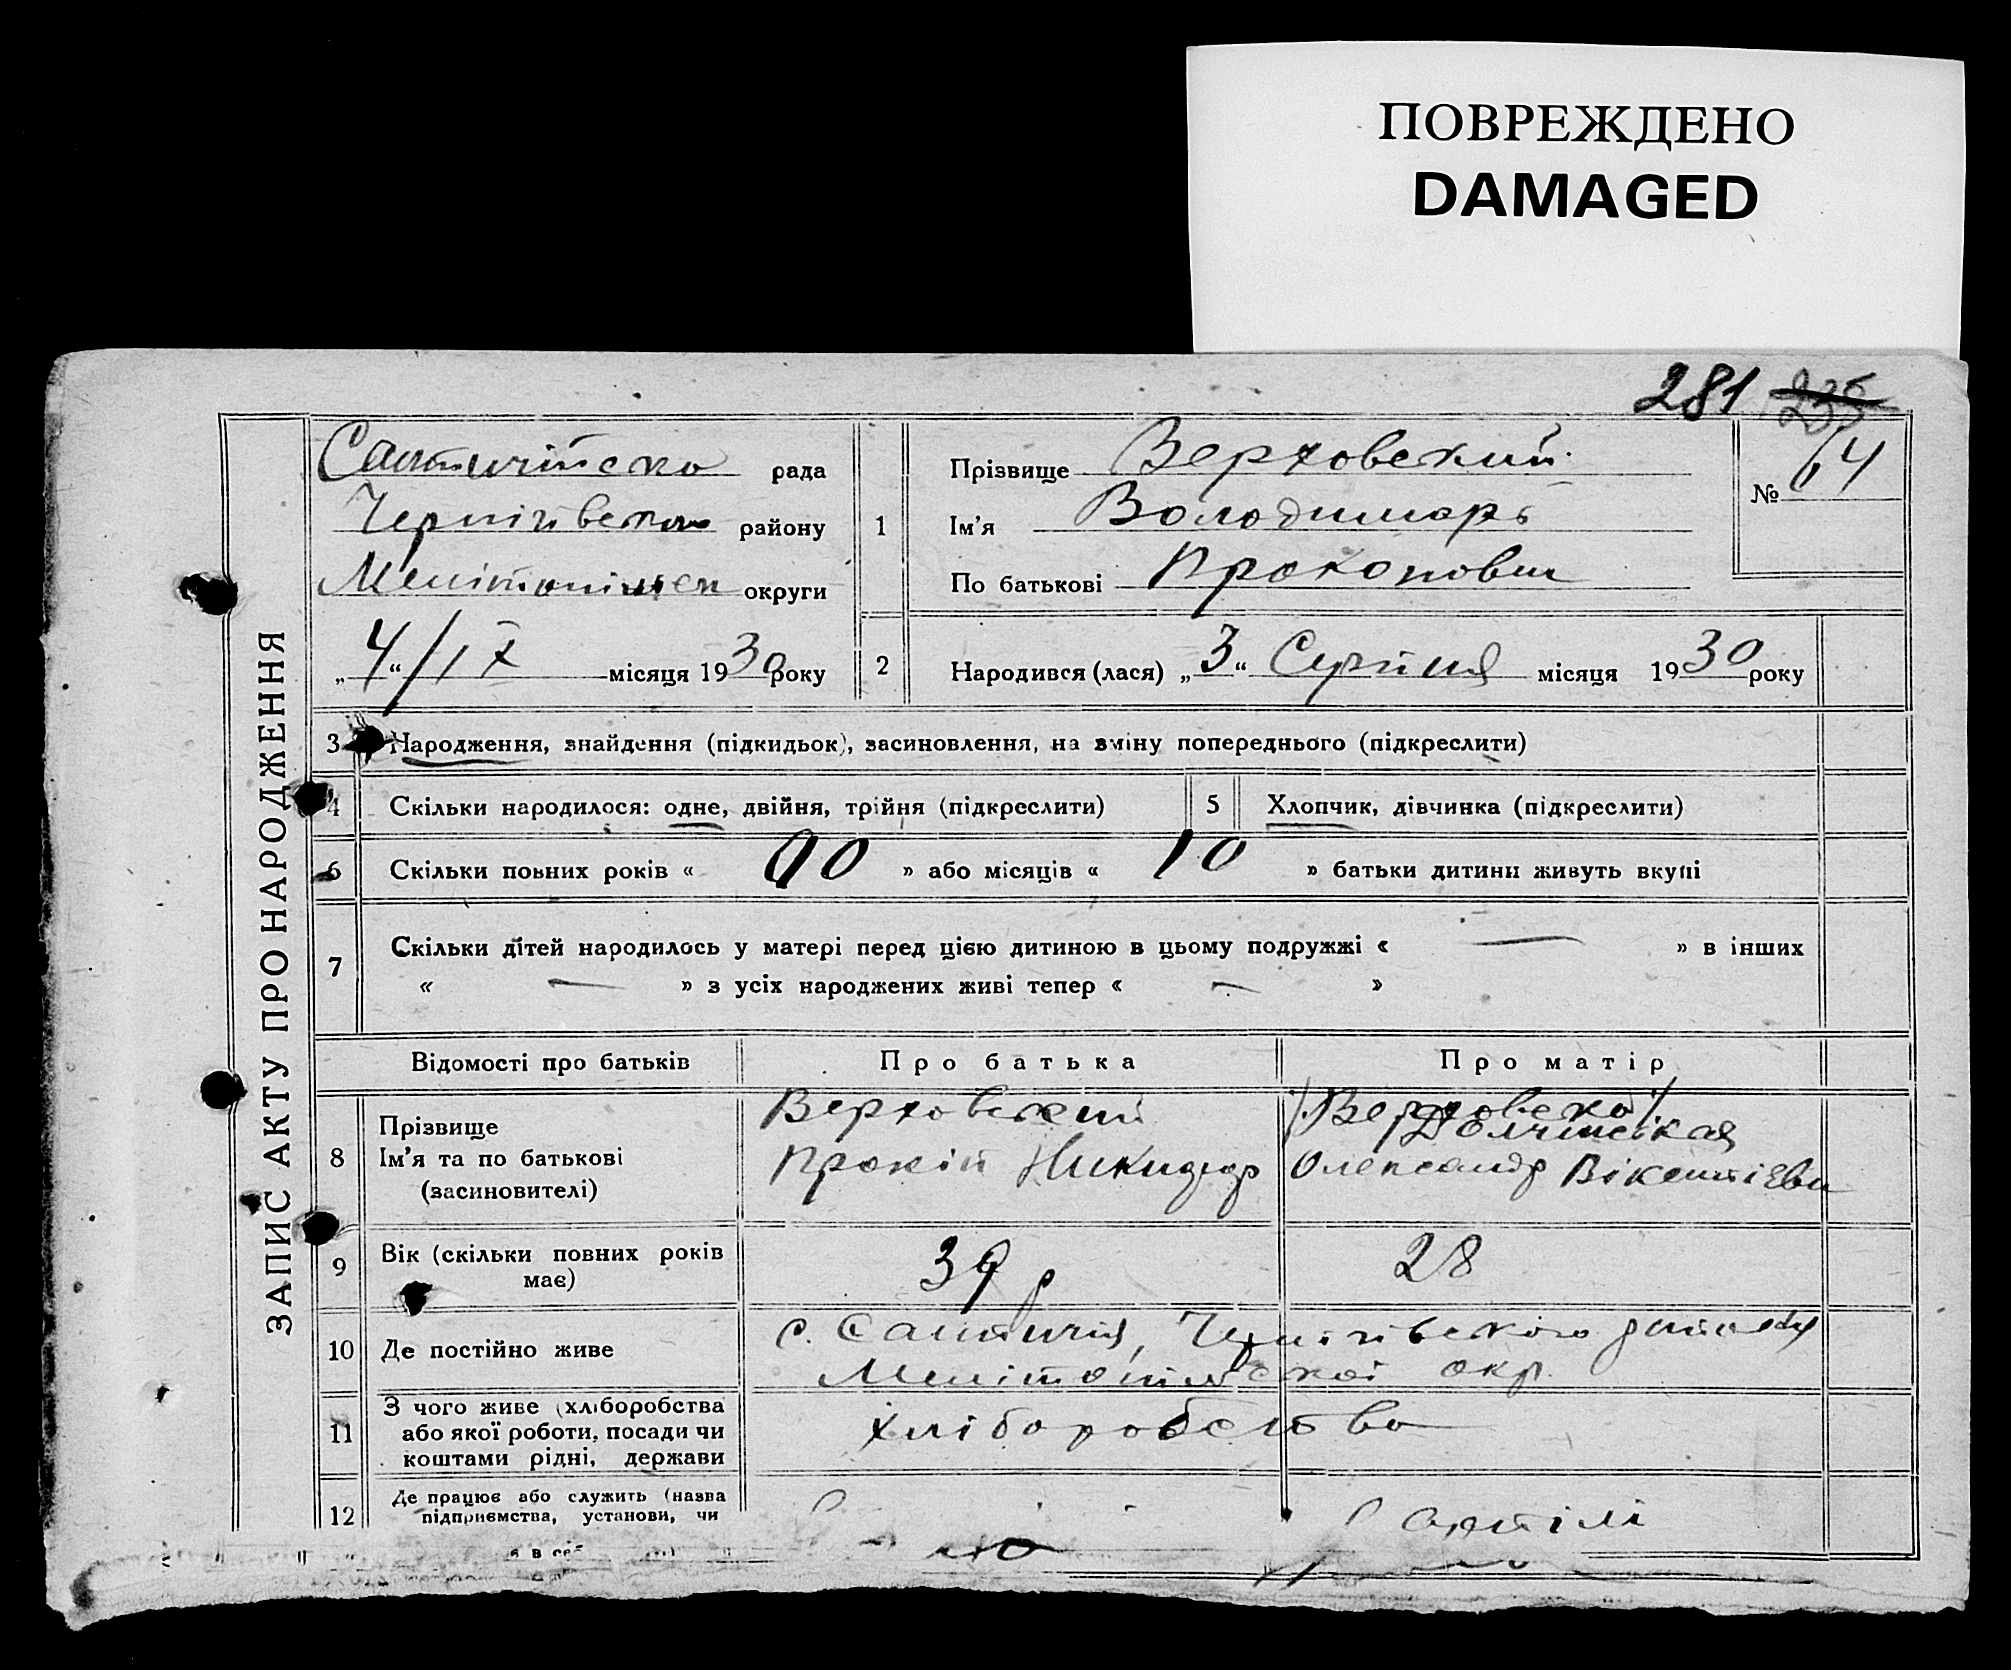 ПОВРЕЖДЕНО
DAMAGED
281 235
ЗАПИС АКТУ ПРО НАРОДЖЕННЯ
рада
Чернігівсько району
округи
„4“/ІХ місяця 1930 року
1
Прізвище Верховский
Ім'я Володимарь
По батькові Прокопович
№ 64
2 Народився (лася) „3“ Серпня місяця 1930 року
3 Народження, знайдення (підкидьок), засиновлення, на зміну попереднього (підкреслити)
4 Скільки народилося: одне, двійня, трійня (підкреслити) 5 Хлопчик, дівчинка (підкреслити)
6 Скільки повних років « 00 » або місяців « 10 » батьки дитини живуть вкупі
7 Скільки дітей народилось у матері перед цією дитиною в цьому подружжі « — » в інших
« — » з усіх народжених живі тепер « — »
Відомості про батьків Про батька Про матір
8 Прізвище
Ім'я та по батькові
(засиновителі)
Верховский
Прокіп Никифор
/Верховска/
Олександр Вікентіеви
9 Вік (скільки повних років
має)
39 р
28
10 Де постійно живе
с. Салтичія, Чернігівського району
Мелітопільскоі окр.
11 З чого живе (хліборобства
або якої роботи, посади чи
коштами рідні, держави
хліборобство
12 Де працює або служить (назва
підприємства, установи, чи
в артілі